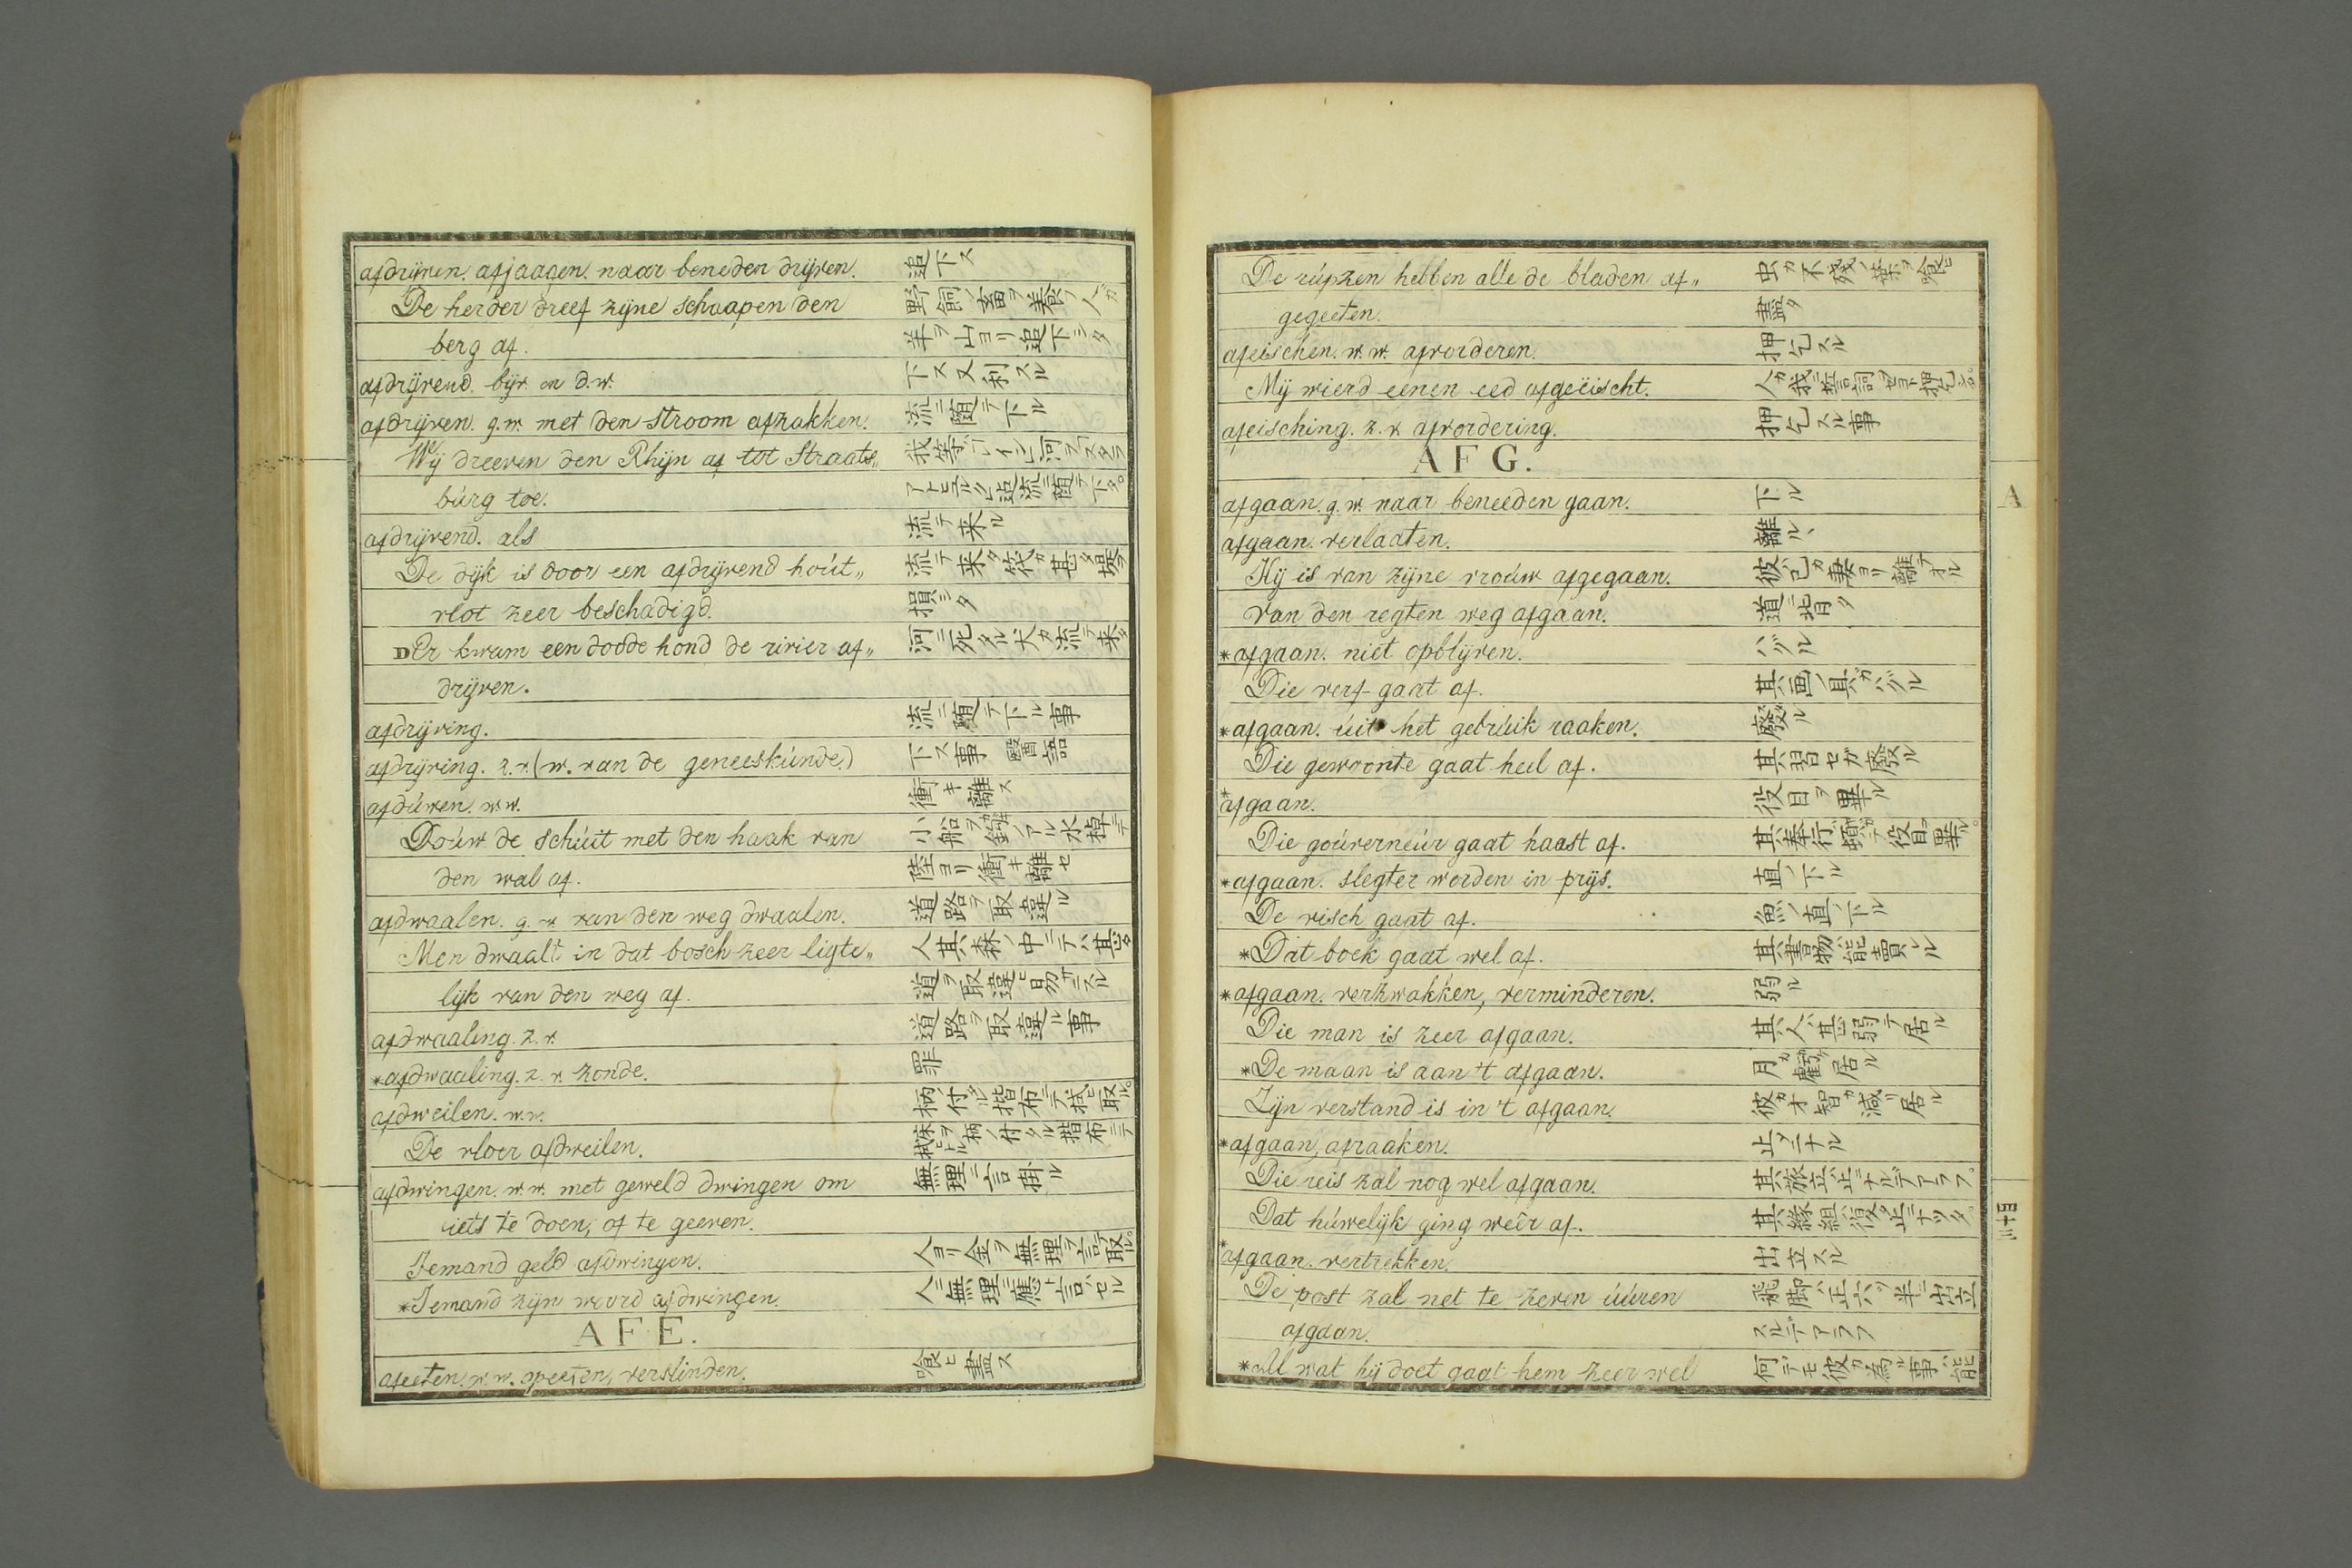 afdrijven. afjaagen. naar beneden drijven. 追下ス
De herder dreef zijne schaapen den 野飼ノ畜ヲ養フ人ガ
berg af. 羊ヲ山ヨリ追下シタ
afdrijvend. bijv. en d.w. 下ス又利スル
afdrijven. g.w. met den stroom afzakken. 流ニ随テ下ル
Wij dreeven den Rhijn af tot Straats„ 我等
búrg toe. 流ニ随テ下タ。
afdrijvend. als 流テ来ル
De dijk is door een afdrijvend hoút„ 流テ来タ筏ガ甚タ堤ヲ
vlot zeer beschadigd. 損シタ
Er kwam een doode hond de rivier af„ 河ニ死タル犬ガ流テ来タ
drijven.
afdrijving. 流ニ随テ下ル事
afdrijving. z.v. (w. van de geneeskúnde.) 下ス事 醫語
afdúwen. w.w. 衝キ離ス
Doúw de schúit met den haak van 小船ヲ鎰ノアル水棹ニテ
den wal af. 陸ヨリ衝キ離セ
afdwaalen. g.w. van den weg dwaalen. 道路ヲ取違ル
Men dwaalt in dat bosch zeer ligte„ 人其森ノ中ニテハ甚タ
lijk van den weg af. 道ヲ取違ヒ易
afdwaaling. z.v. 道路ヲ取違ル事
*afdwaaling. z.v. zonde. 罪
afdweilen. w.w. 柄ノ付タル揩布ニテ拭ヒ取ル。
De vloer afdweilen. 床ヲ柄ノ付タル揩布ニテ拭ヒトル
afdwingen. w.w. met geweld dwingen om 無理ニ言掛ル
iets te doen, of te geeven.
Iemand geld afdwingen. 人ヨリ金ヲ無理ニ言テ取ル。
*Iemand zijn woord afdwingen. 人ニ無理ニ應ト言ハセル
AFE.
afeeten. w.w. opeeten, verslinden. 喰ヒ盡ス
De rúpzen hebben alle de bladen af„ 虫ガ不残葉ヲ喰ヒ
gegeeten. 盡タ
afeischen. w.w. afvorderen. 押乞スル
Mij wierd eenen eed afgeëischt. 人ガ我ニ誓詞ヲ押乞シタ。
afeisching. z.v. afvordering. 押乞スル事
AFG.
afgaan. g.w. naar beneeden gaan. 下ル
afgaan. verlaaten. 離ル
Hij is van zijne vroúw afgegaan. 彼ハ己ガ妻ヨリ離テオル
Van den regten weg afgaan. 道ニ背ク
*afgaan. niet opblijven. ハゲル
Die verf gaat af. 其画ノ具ガハゲル
*afgaan. úit het gebrúik raaken. 廢ル
Die gewoonte gaat heel af. 其習セガ廢ル
*afgaan. 役目ヲ畢ル
Die goúverneúr gaat haast af. 其奉行ガ頓テ役目ヲ畢ル。
*afgaan. slegter worden in prijs. 直ノ下ル
De visch gaat af. 魚ノ直ガ下ル
*Dat boek gaat wel af. 其書物ハ能賣ル
*afgaan. verzwakken, verminderen. 弱ル
Die man is zeer afgaan. 其人ハ甚弱テ居ル
*De maan is aan 't afgaan. 月ガ虧テ居ル
Zijn verstand is in 't afgaan. 彼ガ才智ガ減リ居ル
*afgaan, afraaken. 止ニナル
Die reis zal nog wel afgaan. 其旅立ハ止ニナルデアラフ。
Dat húwelijk ging weêr af. 其縁組ハ復タ止ニナツタ。
*afgaan. vertrekken. 出立スル
De post zal net te zeven úúren 飛脚ハ正六ツ半ニ出立
afgaan. スルデアラフ
*Al wat hij doet gaat hem zeer wel 何デモ彼ガ為ル事ハ能
A